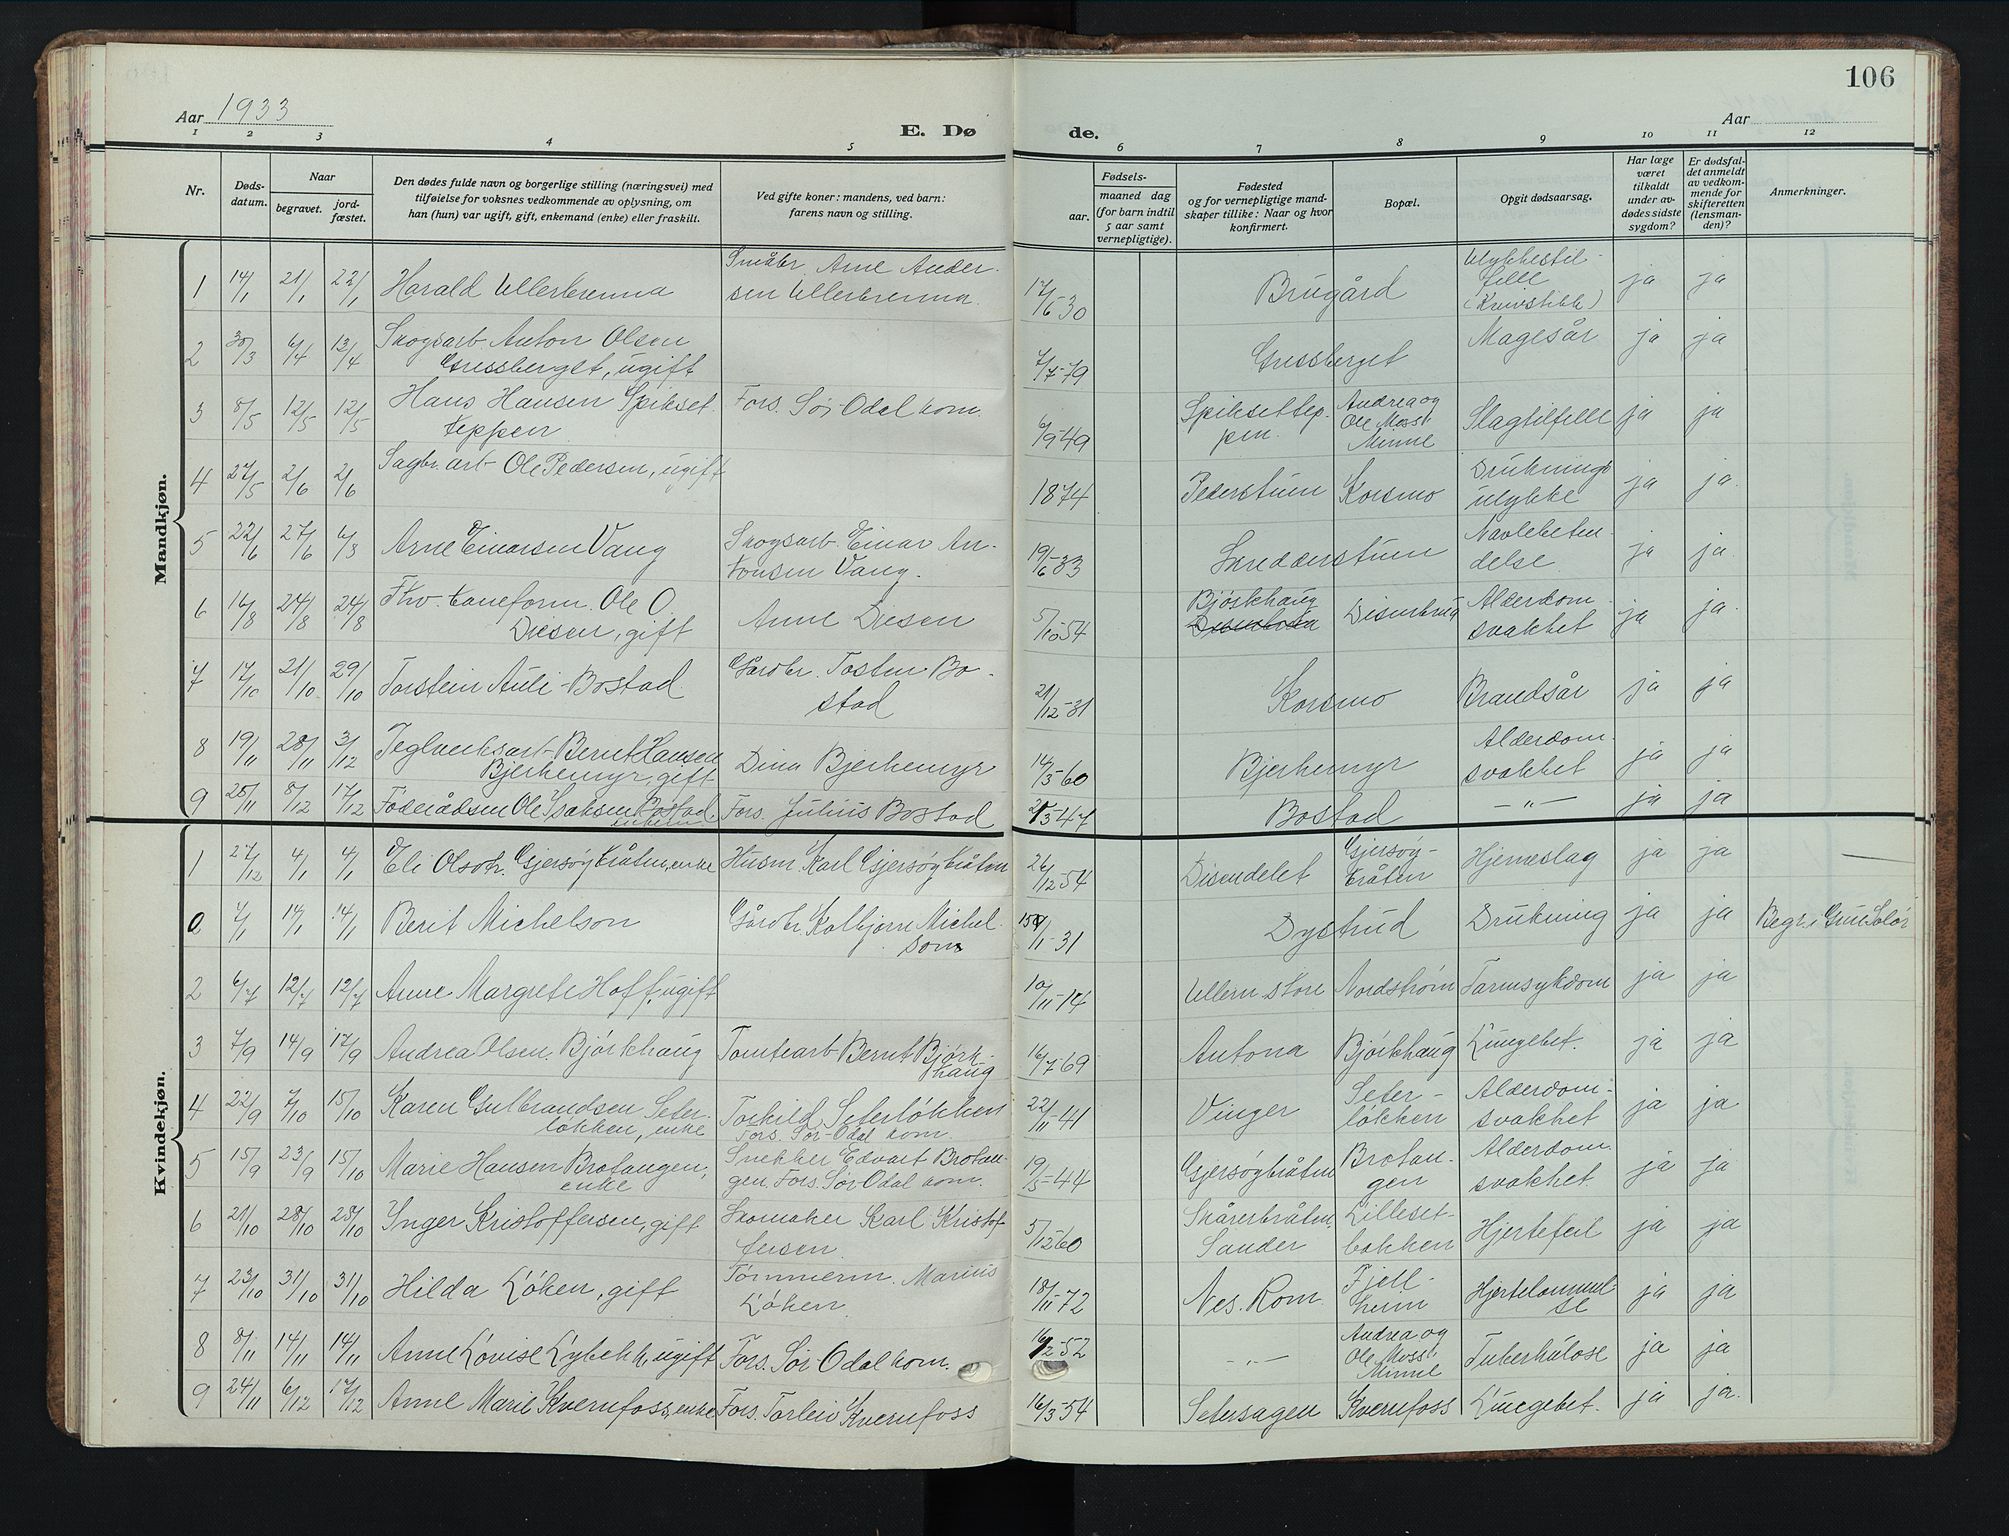 106
Aar 1933
E. Døde.
Aar
1 2 3 4 5 6 7 8 9 10 11 12
Nr.
Døds-
datum.
Naar
begravet.
jord-
fæstet.
Den dødes fulde navn og borgerlige stilling (næringsvei) med
tilføielse for voksnes vedkommende av oplysning, om
han (hun) var ugift, gift, enkemand (enke) eller fraskilt.
Ved gifte koner: mandens, ved barn:
farens navn og stilling.
Fødsels-
aar.
maaned dag
(for barn indtil
5 aar samt
vernepligtige).
Fødested
og for vernepligtige mand-
skaper tillike: Naar og hvor
konfirmert.
Bopæl.
Opgit dødsaarsag.
Har læge
været
tilkaldt
under av-
dødes sidste
sygdom?
Er dødsfal-
det anmeldt
av vedkom-
mende for
skifteretten
(lensman-
den)?
Anmerkninger.
Mandkjøn.
1 14/1 21/1 22/1 Harald Ullerbrenna Småbr. Arne Ander-
sen Ullerbrenna. 17/5 30 Brugård Ulykkestil-
felle
(Knivstikk) ja ja
2 30/3 6/4 13/4 Skogsarb. Anton Olsen
Gressberget, ugift 7/7-79 Gressberget Magesår ja ja
3 8/5 12/5 12/5 Hans Hansen Spikset
teppen Fors. Sør-Odal kom. 6/9-49 Spiksettep-
pen. Andrea og
Ole Moss'
Minne Slagtilfelle ja ja
4 27/5 2/6 2/6 Sagbr. arb. Ole Pedersen, ugift 1874 Pederstuen Korsmo Druknings
ulykke ja ja.
5 22/6 27/6 6/8 Arne Einarsen Vang Skogsarb. Einar An-
tonsen Vang. 19/6-33 Skredderstuen Navlebeten-
delse. ja ja.
6 16/8 24/8 24/8 Fhv. tøneform. Ole O.
Disen, gift Anne Disen 5/10-54 Bjørkhaug Disenbrug Alderdom-
svakhet ja ja.
7 17/10 21/10 29/10 Torstein Auli-Bostad. Gårdbr. Tosten Bo-
stad 21/12-31 Korsmo Brandsår ja ja
8 19/11 28/11 3/12 Teglverksarb. Bernt Hansen
Bjerkemyr, gift Dina Bjerkemyr 14/3-60 Bjerkemyr Alderdom-
svakhet ja ja
9 25/11 8/12 17/12 Føderådsm Ole Isaksen Bostad,
enkem. Fors. Julius Bostad 2/3-47 Bostad -„- ja ja
Kvindekjøn.
1 27/12 4/1 4/1 Eli Olsdtr. Gjersøybråten, enke Husm. Karl Gjersøybråten 26/12-54 Disendelet Gjersøy-
bråten Hjerneslag ja ja
0 7/1 14/1 14/1 Berit Michelson Gårdbr. Kolbjørn Michel-
son 15/1-31 Dystrud Drukning ja ja Begr. i Grue Solør
2 6/7 12/7 12/7 Anne Margrete Hoff, ugift 10/11-14 Ullern store Nordstrøm Tarmsykdom ja ja
3 7/9 14/9 17/9 Andrea Olsen Bjørkhaug Tomtearb. Bernt Bjørk-
haug 16/7-69 Antona Bjørkhaug Lungebet. ja ja
4 22/9 7/10 15/10 Karen Gulbrandsen Seter-
løkken, enke Torkild Seterløkken
Fors. Sør-Odal kom. 22/11-41 Vinger Seter-
løkken Alderdom-
svakhet ja ja
5 15/9 23/9 15/10 Marie Hansen Brotangen,
enke Snekker Edvart Brotan-
gen. Fors. Sør Odal kom. 19/5-44 Gjersøybråten Brotan-
gen Alderdom.
svakhet. ja ja
6 21/10 28/10 28/10 Inger Kristoffersen, gift Skomaker Karl Kristof-
fersen. 5/12-60 Skårerbråten,
Sander Lilleset-
bakken Hjertefeil ja ja
7 23/10 31/10 31/10 Hilda Løken, gift Tømmerm. Marius
Løken. 18/11-72 Nes. Rom. Fjell-
heim Hjertelammel-
se ja ja
8 8/11 14/11 14/11 Anne Lovise Lybekk, ugift Fors. Sør Odal kom. 16/2-52 -„- Andrea og
Ole Moss'
Minne Tuberkulose ja ja
9 24/11 6/12 17/12 Anne Marie Kvernfoss, enke Fors. Torleiv Kvernfoss 16/3-54 Setersagen Kvernfoss Lungebet. ja ja.